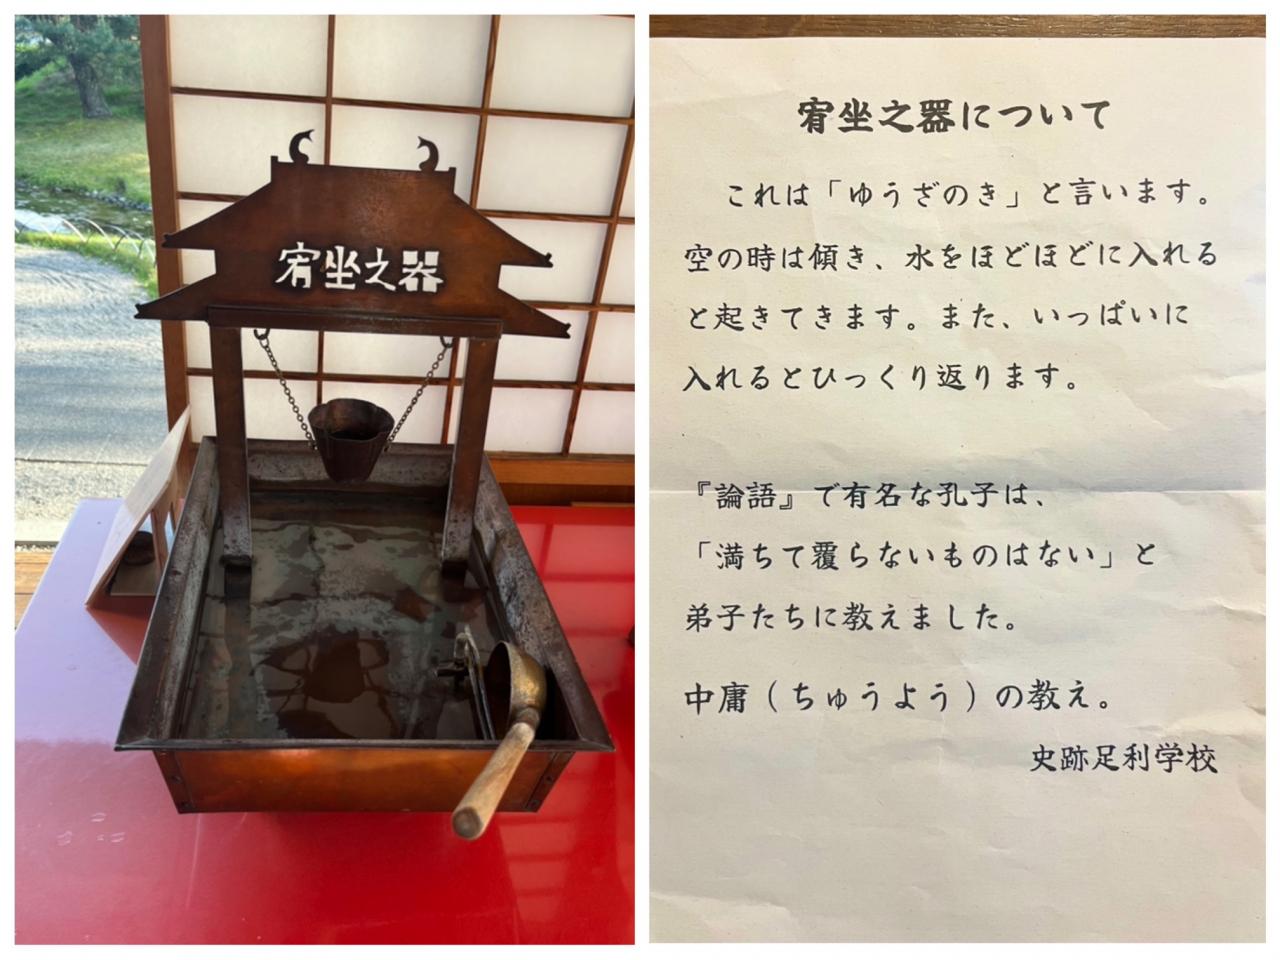 宥坐之器
宥坐之器について
これは「ゆうざのき」と言います。
空の時は傾き、水をほどほどに入れる
と起きてきます。また、いっぱいに
入れるとひっくり返ります。
『論語』で有名な孔子は、
「満ちて覆らないものはない」と
弟子たちに教えました。
中庸（ちゅうよう）の教え。
史跡足利学校